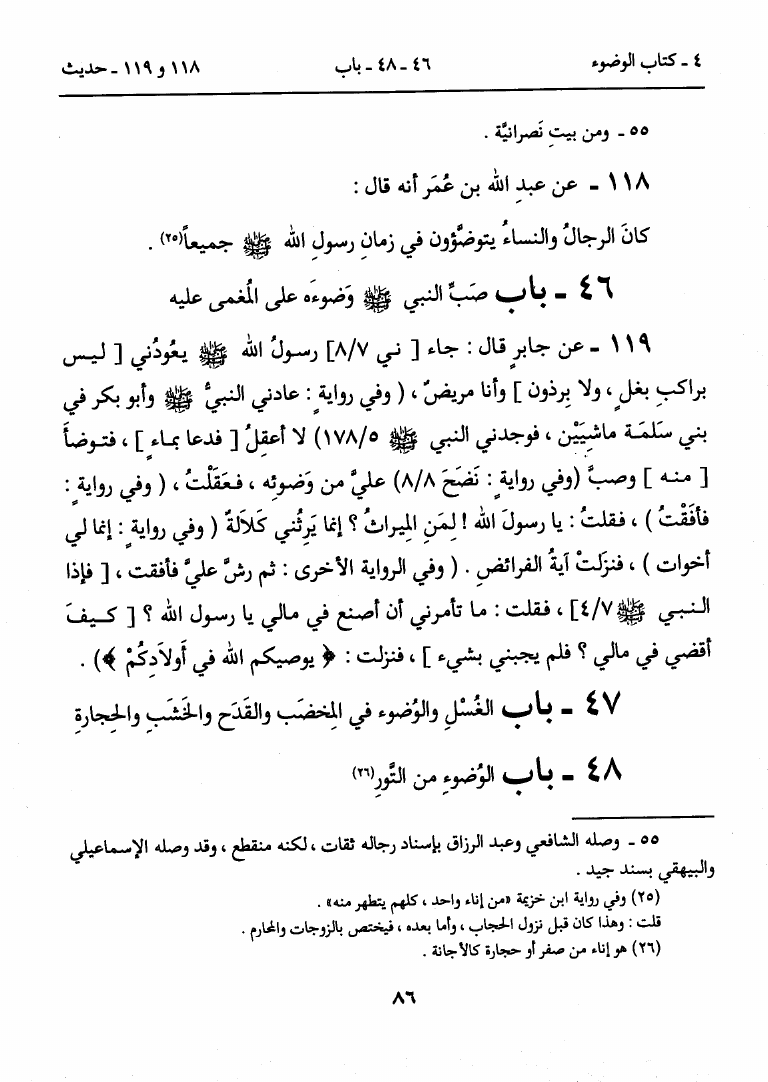 ٤ ـ كتاب الوضوء ٤٦ ـ ٤٨ ـ باب ١١٨ و ١١٩ ـ حديث
٥٥ ـ ومن بيتِ نَصرانيَّة .
١١٨ ـ عن عبدِ الله بن عُمَر أنه قال :
كانَ الرجالُ والنساءُ يتوضَّؤون في زمانِ رسولِ الله ﷺ جميعاً(٢٥) .
٤٦ ـ باب صَبِّ النبي ﷺ وَضوءَه على المُغمى عليه
١١٩ ـ عن جابرٍ قال : جاء [ ني ٨/٧] رسولُ الله ﷺ يعُودُني [ ليس
براكبِ بغلٍ ، ولا بِرذون ] وأنا مريضٌ ، ( وفي روايةٍ : عادني النبيُّ ﷺ وأبو بكر في
بني سَلَمَـة ماشِيَيْن ، فوجدني النبي ﷺ ١٧٨/٥) لا أعقِلُ [ فدعا بمـاءٍ ] ، فتـوضأَ
[ منـه ] وصبَّ (وفي روايةٍ : نَضَحَ ٨/٨) عليَّ من وَضوئه ، فـعَقَلْتُ ، ( وفي روايةٍ :
فأفَقْتُ ) ، فقلتُ : يا رسولَ الله ! لِمَنِ المِيراثُ ؟ إنما يَرِثُني كَلَالةٌ ( وفي روايةٍ : إنما لي
أخوات ) ، فنزلَتْ آيةُ الفرائضِ . ( وفي الرواية الأخرى : ثم رشَّ عليَّ فأفقت ، [ فإذا
النـبـي ﷺ ٤/٧] ، فقلت : ما تأمرني أن أصنع في مالي يا رسول الله ؟ [ كـيـفَ
أقضي في مالي ؟ فلم يجبني بشيء ] ، فنزلت : ﴿ يوصيكم الله في أَولاَدِكُمْ ﴾) .
٤٧ ـ باب الغُسْلِ والوُضوء في المِخضَب والقَدَح والخَشَبِ والحِجارةِ
٤٨ ـ باب الوُضوءِ من التَّورِ(٢٦)
٥٥ ـ وصله الشافعي وعبد الرزاق بإسناد رجاله ثقات ، لكنه منقطع ، وقد وصله الإسماعيلي
والبيهقي بسند جيد .
(٢٥) وفي رواية ابن خزيمة «من إناء واحد ، كلهم يتطهر منه» .
قلت : وهذا كان قبل نزول الحجاب ، وأما بعده ، فيختص بالزوجات والمحارم .
(٢٦) هو إناء من صفر أو حجارة كالأجانة .
٨٦